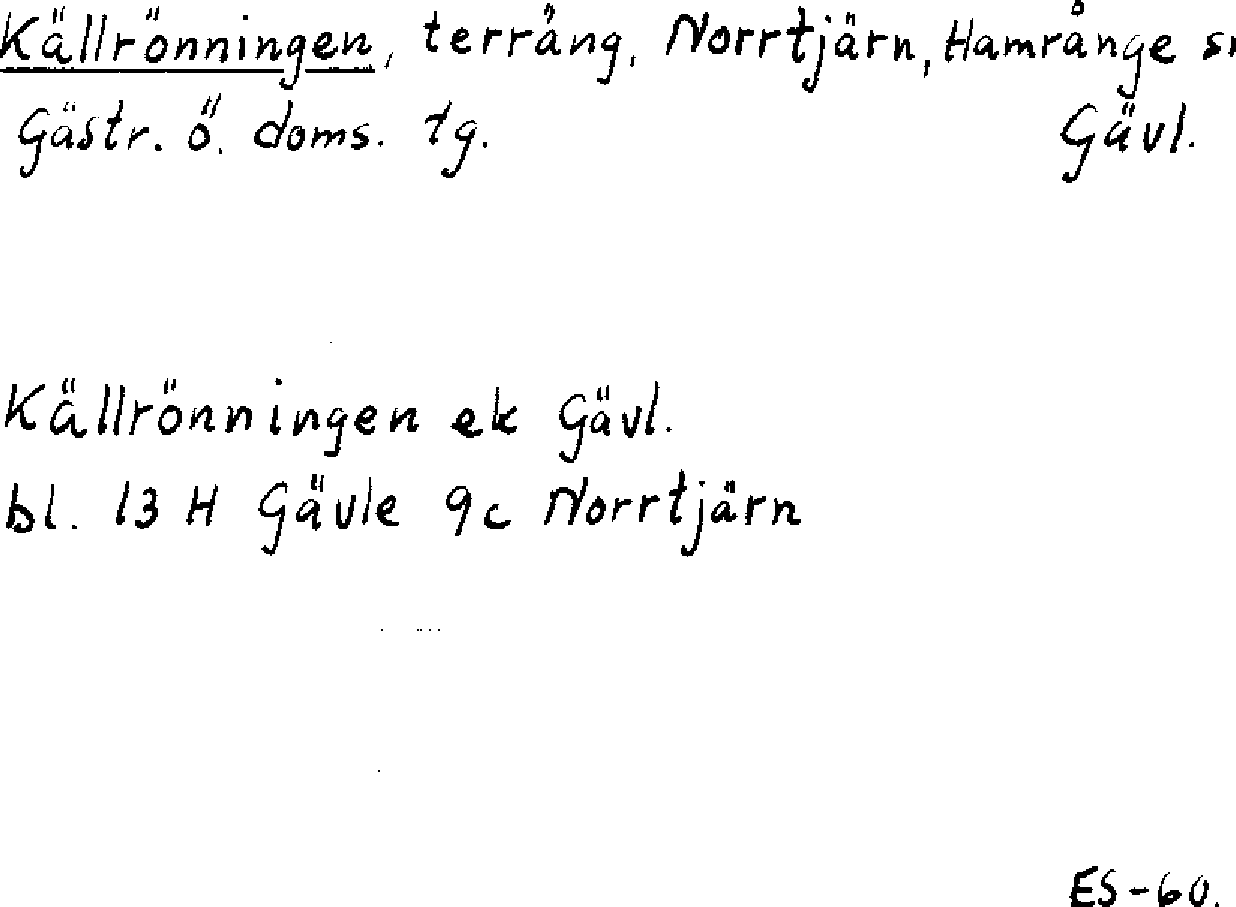 Källrönningen, terräng, Norrtjärn, Hamrånge s
Gästr. ö. doms. tg. Gävl.
Källrönningen ek Gävl.
bl. 13 H Gävle 9c Norrtjärn
ES-60.